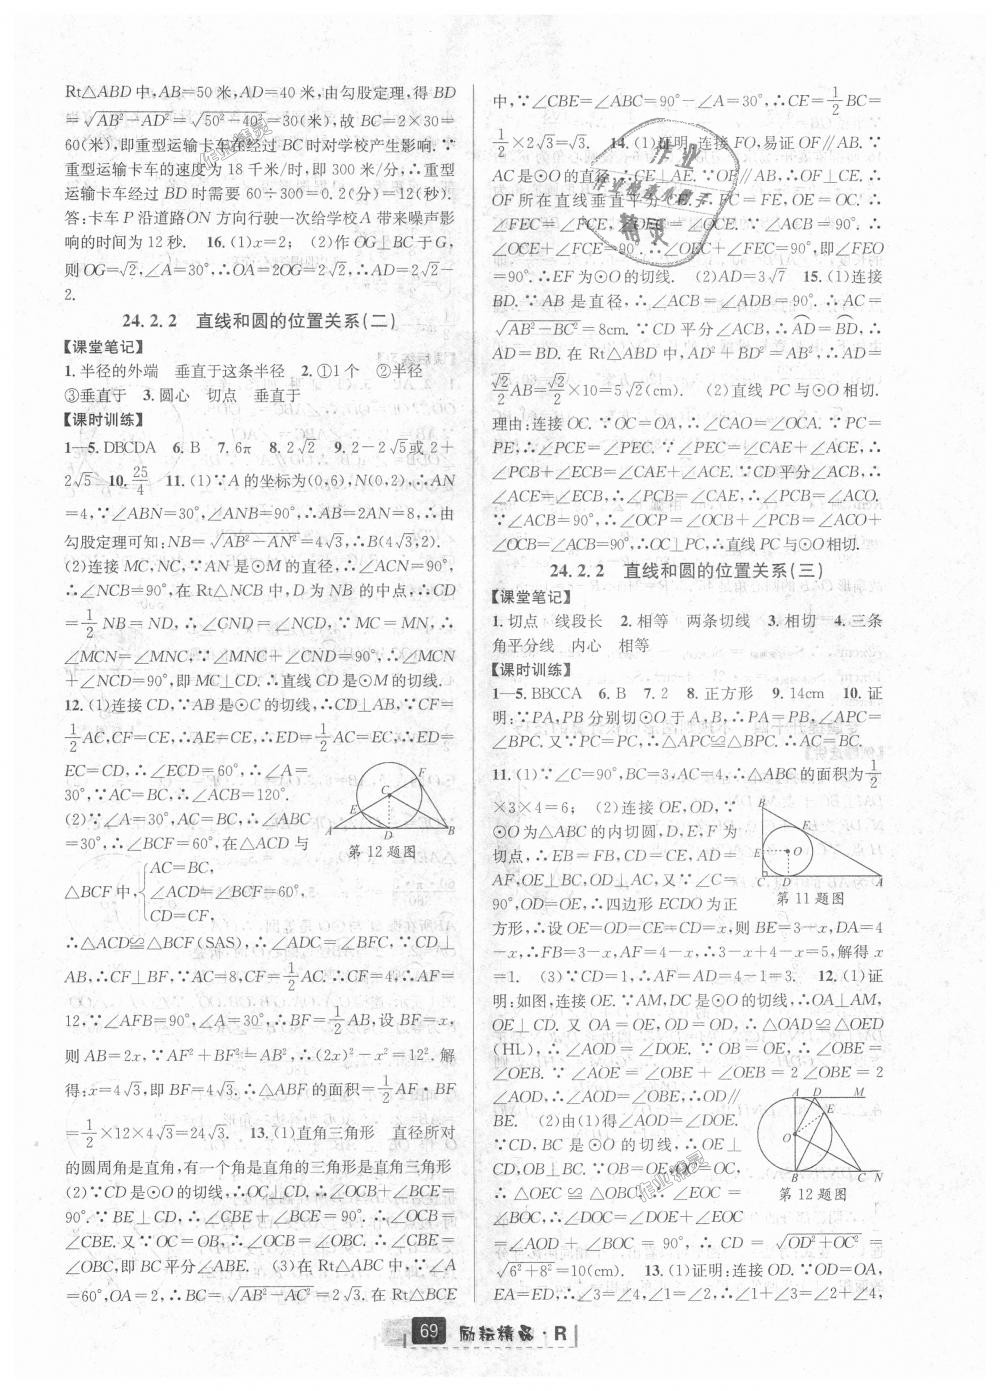 Rt△ABD 中,AB=50 米,AD=40 米,由勾股定理,得 BD
=√(AB²-AD²)=√(50²-40²)=30(米),故 BC=2×30=
60(米),即重型运输卡车在经过 BC 时对学校产生影响.∵
重型运输卡车的速度为 18 千米/时,即 300 米/分,∴重型
运输卡车经过 BD 时需要 60÷300=0.2(分)=12(秒).
答:卡车 P 沿道路ON 方向行驶一次给学校A 带来噪声影
响的时间为 12 秒. 16.(1)x=2; (2)作 OG⊥BC 于G,
则 OG=√2,∠A=30°,∴OA=2OG=2√2,∴AD=2√2-
2.
24.2.2 直线和圆的位置关系(二)
【课堂笔记】
1.半径的外端 垂直于这条半径 2.①1个 ②半径
③垂直于 3.圆心 切点 垂直于
【课时训练】
1—5.DBCDA 6.B 7.6π 8.2√2 9.2-2√5或2+
2√5 10.25/4 11.(1)∵A 的坐标为(0,6),N(0,2),∴AN
=4,∵∠ABN=30°,∠ANB=90°,∴AB=2AN=8,∴由
勾股定理可知:NB=√(AB²-AN²)=4√3,∴B(4√3,2).
(2)连接 MC,NC,∵AN 是⊙M 的直径,∴∠ACN=90°,
∴∠NCB=90°,在 Rt△NCB 中,D 为 NB 的中点,∴CD
=1/2NB=ND,∴∠CND=∠NCD,∵MC=MN,∴
∠MCN=∠MNC,∵∠MNC+∠CND=90°,∴∠MCN
+∠NCD=90°,即 MC⊥CD.∴直线 CD 是⊙M 的切线.
12.(1)连接 CD,∵AB 是⊙C 的切线,∴CD⊥AB,∵CF=
1/2AC,CF=CE,∴AE=CE,∴ED=1/2AC=EC,∴ED=
EC=CD,∴∠ECD=60°,∴∠A=
30°,∵AC=BC,∴∠ACB=120°.
(2)∵∠A=30°,AC=BC,∴∠ABC
=30°,∴∠BCF=60°,在△ACD 与
△BCF 中,
AC=BC,
∠ACD=∠BCF=60°,
CD=CF,
C
F
E
A
D
B
第 12 题图
∴△ACD≌△BCF(SAS),∴∠ADC=∠BFC,∵CD⊥
AB,∴CF⊥BF,∵AC=8,CF=1/2AC.∴CF=4,∴AF=
12,∵∠AFB=90°,∠A=30°,∴BF=1/2AB,设 BF=x,
则 AB=2x,∵AF²+BF²=AB²,∴(2x)²-x²=12². 解
得:x=4√3,即 BF=4√3.∴△ABF 的面积=1/2AF·BF
=1/2×12×4√3=24√3. 13.(1)直角三角形 直径所对
的圆周角是直角,有一个角是直角的三角形是直角三角形
(2)∵CD 是⊙O 的切线,∴OC⊥CD,∴∠OCB+∠BCE=
90°.∵BE⊥CD,∴∠CBE+∠BCE=90°. ∴∠OCB=
∠CBE.又∵OC=OB,∴∠OCB=∠OBC. ∴∠CBE=
∠OBC,即 BC 平分∠ABE. (3)在 Rt△ABC 中,∵∠A
=60°,OA=2,∴BC=√(AB²-AC²)=2√3.在 Rt△BCE
中,∵∠CBE=∠ABC=90°-∠A=30°,∴CE=1/2BC=
1/2×2√3=√3. 14.(1)证明:连接 FO,易证 OF∥AB.∵
AC 是⊙O 的直径,∴CE⊥AE.∵OF∥AB,∴OF⊥CE.∴
OF 所在直线垂直平分 CE,∴FC=FE,OE=OC.∴
∠FEC=∠FCE,∠OEC=∠OCE.∵∠ACB=90°,∴
∠OCE+∠FCE=90°.∴∠OEC+∠FEC=90°,即∠FEO
=90°.∴EF 为⊙O 的切线. (2)AD=3√7 15.(1)连接
BD.∵AB 是直径,∴∠ACB=∠ADB=90°.∴AC=
√(AB²-BC²)=8cm.∵CD 平分∠ACB,∴AD=BD,∴
AD=BD.在 Rt△ABD 中,AD²+BD²=AB²,∴AD=
√2/2AB=√2/2×10=5√2(cm). (2)直线 PC 与⊙O 相切.
理由:连接 OC.∵OC=OA,∴∠CAO=∠OCA.∵PC=
PE,∴∠PCE=∠PEC.∵∠PEC=∠CAE+∠ACE,∴
∠PCB+∠ECB=∠CAE+∠ACE.∵CD 平分∠ACB,∴
∠ACE=∠ECB,∴∠PCB=∠CAE,∴∠PCB=∠ACO.
∵∠ACB=90°,∴∠OCP=∠OCB+∠PCB=∠ACO+
∠OCB=∠ACB=90°,∴OC⊥PC,∴直线 PC 与⊙O 相切.
24.2.2 直线和圆的位置关系(三)
【课堂笔记】
1.切点 线段长 2.相等 两条切线 3.相切 4.三条
角平分线 内心 相等
【课时训练】
1—5.BBCCA 6.B 7.2 8.正方形 9.14cm 10.证
明:∵PA,PB 分别切⊙O 于 A,B,∴PA=PB,∠APC=
∠BPC.又∵PC=PC,∴△APC≌△BPC.∴AC=BC.
11.(1)∵∠C=90°,BC=3,AC=4,∴△ABC 的面积为1/2
×3×4=6; (2)连接 OE,OD,∵
⊙O 为△ABC 的内切圆,D,E,F 为
切点,∴EB=FB,CD=CE,AD=
AF,OE⊥BC,OD⊥AC,又∵∠C=
90°,OD=OE,∴四边形 ECDO 为正
B
F
E
O
C
D
A
第 11 题图
方形,∴设 OE=OD=CE=CD=x,则 BE=3-x,DA=4
-x,∴FB=3-x,AF=4-x,∴3-x+4-x=5,解得 x
=1. (3)∵CD=1,∴AF=AD=4-1=3. 12.(1)证
明:如图,连接 OE.∵AM,DC 是⊙O 的切线,∴OA⊥AM,
OE⊥CD. 又 OA=OE,OD=OD,∴△OAD≌△OED
(HL),∴∠AOD=∠DOE.∵OB=OE,∴∠OBE=
∠OEB.∵∠AOE=∠OBE+∠OEB=2∠OBE=2
∠AOD,∴∠AOD=∠OBE,∴OD∥
BE. (2)由(1)得∠AOD=∠DOE.
∵CD,BC 是⊙O 的切线,∴OE⊥
CD,OB⊥BC.∵OB=OE,OC=OC,
∴△OEC≌△OBC,∴∠EOC=
∠BOC,∴∠DOC=∠DOE+∠EOC
A
D
M
E
O
B
C
N
第 12 题图
=∠AOD+∠BOC=90°,∴CD=√(OD²+OC²)=
√(6²+8²)=10(cm). 13.(1)证明:连接 OD.∵OD=OA,
EA=ED,∴∠3=∠4,∠1=∠2,∴∠1+∠3=∠2+∠4,
69 励耘精品·R